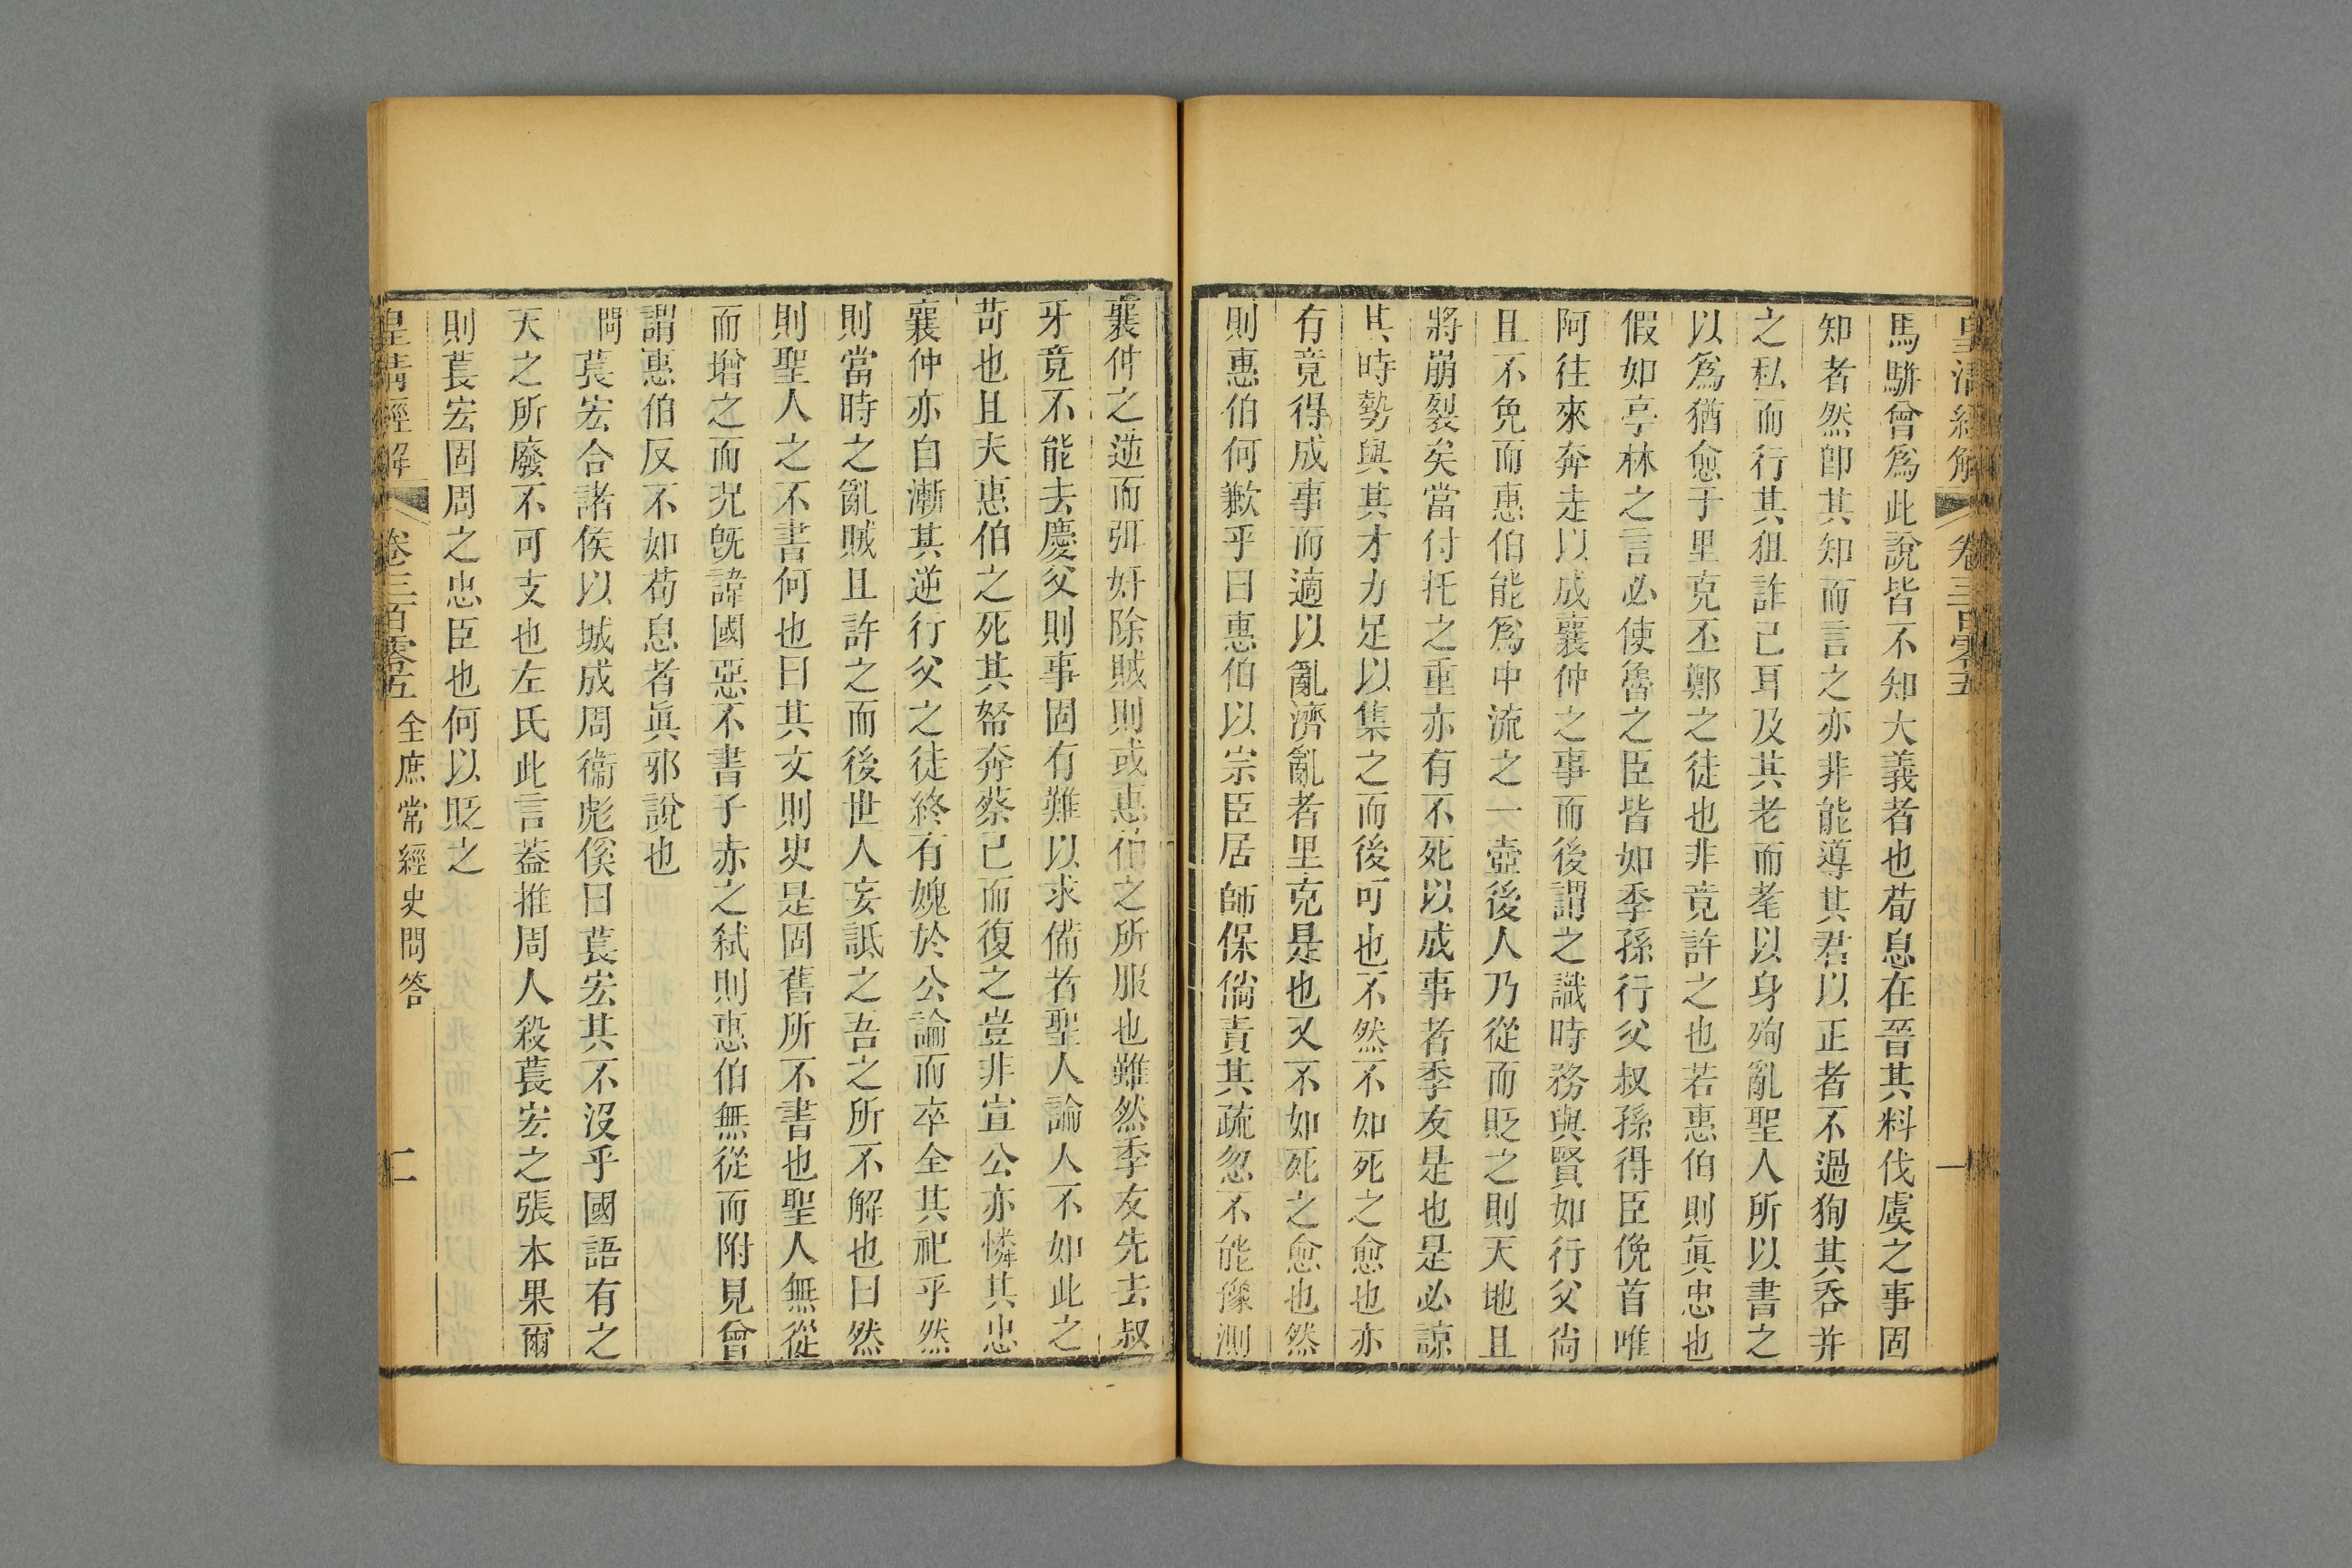 皇清經解 卷三百零五 一
馬騈曾爲此說皆不知大義者也荀息在晉其料伐虞之事固
知者然卽其知而言之亦非能導其君以正者不過狥其吞并
之私而行其狙詐已耳及其老而耄以身殉亂聖人所以書之
以爲猶愈于里克丕鄭之徒也非竟許之也若惠伯則眞忠也
假如亭林之言必使魯之臣皆如季孫行父叔孫得臣俛首唯
阿往來奔走以成襄仲之事而後謂之識時務與賢如行父尙
且不免而惠伯能爲中流之一壺後人乃從而貶之則天地且
將崩裂矣當付托之重亦有不死以成事者季友是也是必諒
其時勢與其才力足以集之而後可也不然不如死之愈也亦
有竟得成事而適以亂濟亂者里克是也又不如死之愈也然
則惠伯何歉乎曰惠伯以宗臣居師保倘責其疏忽不能豫測
襄仲之逆而弭奸除賊則或惠伯之所服也雖然季友先去叔
牙竟不能去慶父則事固有難以求備者聖人論人不如此之
苛也且夫惠伯之死其帑奔蔡已而復之豈非宣公亦憐其忠
襄仲亦自漸其逆行父之徒終有媿於公論而卒全其祀乎然
則當時之亂賊且許之而後世人妄詆之吾之所不解也曰然
則聖人之不書何也曰其文則史是固舊所不書也聖人無從
而增之而況旣諱國惡不書子赤之弑則惠伯無從而附見曾
謂惠伯反不如荀息者眞邪說也
問萇宏合諸侯以城成周衞彪傒曰萇宏其不沒乎國語有之
天之所廢不可支也左氏此言葢推周人殺萇宏之張本果爾
則萇宏固周之忠臣也何以貶之
皇清經解 卷三百零五 全庶常經史問答 二